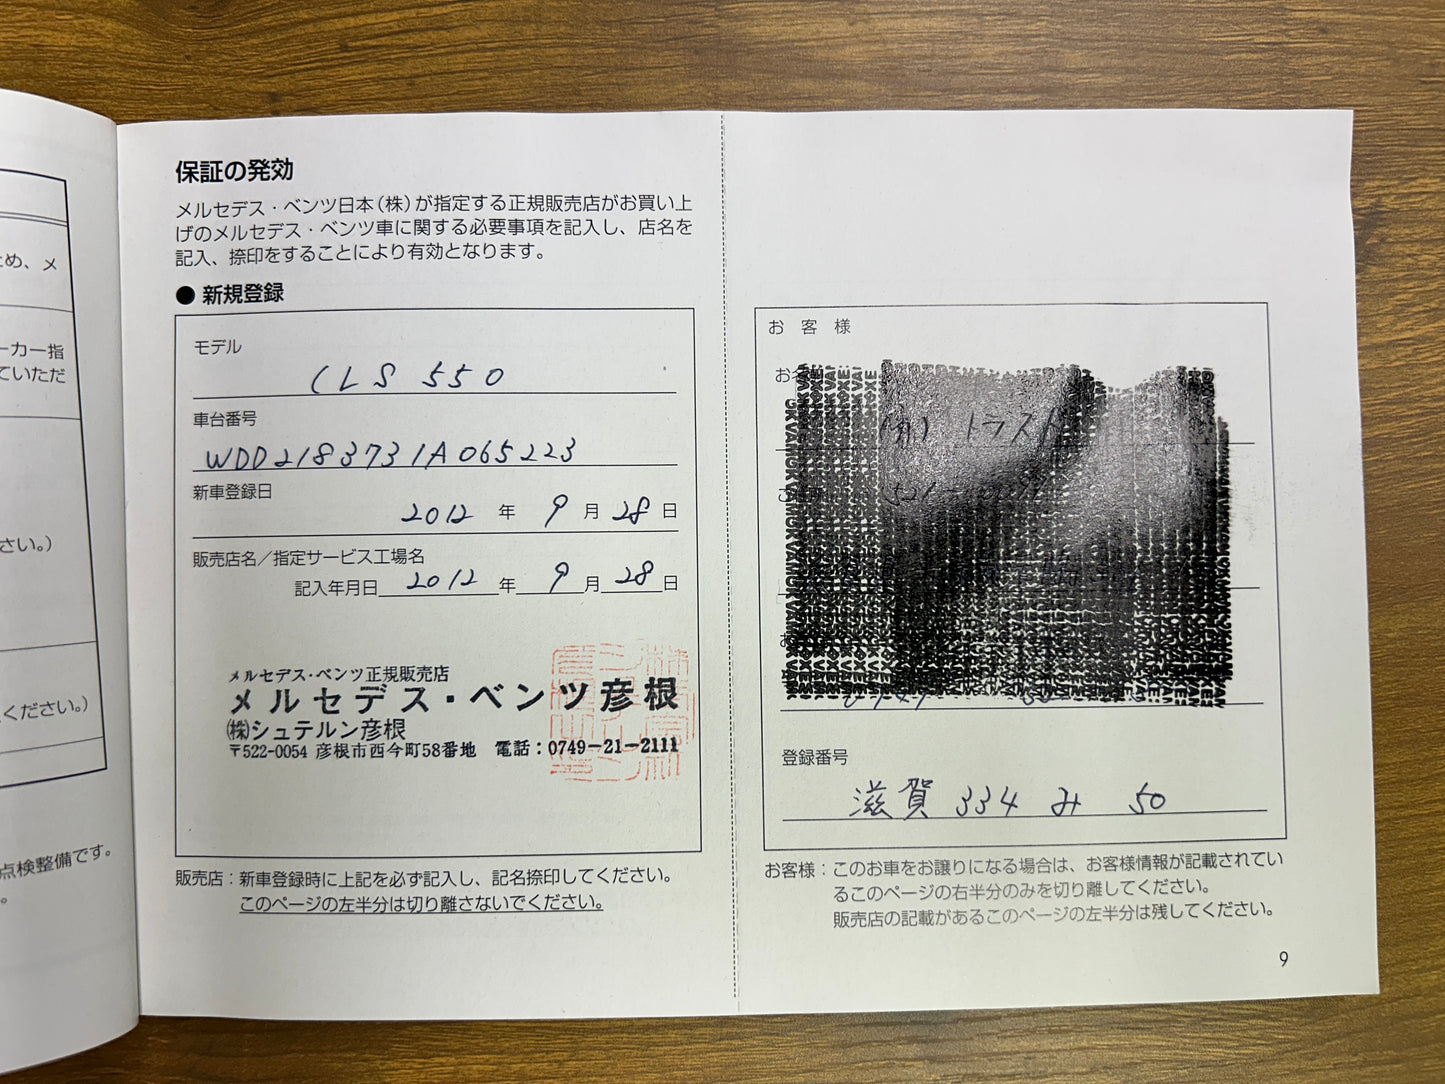 め、メ
ーカー指
ていただ
さい。)
ください。)
点検整備です。
保証の発効
メルセデス・ベンツ日本(株)が指定する正規販売店がお買い上
げのメルセデス・ベンツ車に関する必要事項を記入し、店名を
記入、捺印をすることにより有効となります。
● 新規登録
モデル
CLS 550
車台番号
WDD2183731A065223
新車登録日
2012 年 9 月 28 日
販売店名/指定サービス工場名
記入年月日 2012 年 9 月 28 日
メルセデス・ベンツ正規販売店
メルセデス・ベンツ彦根
(株)シュテルン彦根
〒522-0054 彦根市西今町58番地 電話:0749-21-2111
販売店:新車登録時に上記を必ず記入し、記名捺印してください。
このページの左半分は切り離さないでください。
お客様
登録番号
滋賀 334 み 50
お客様:このお車をお譲りになる場合は、お客様情報が記載されてい
るこのページの右半分のみを切り離してください。
販売店の記載があるこのページの左半分は残してください。
9